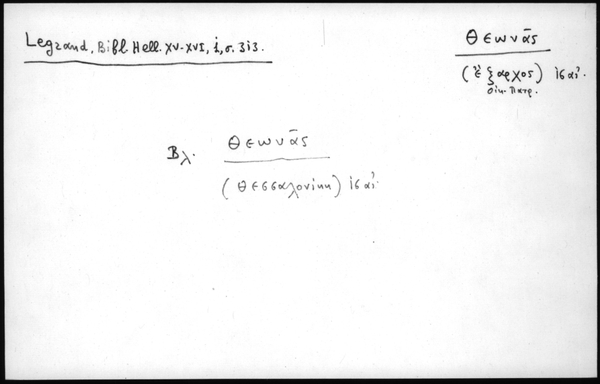 Legrand, Bibl. Hell. XV-XVI, i, σ. 313.
Θεωνᾶς
(ἔξαρχος) 16 αἰ.
Οἰκ. Πατρ.
Βλ. Θεωνᾶς
(Θεσσαλονίκη) 16 αἰ.